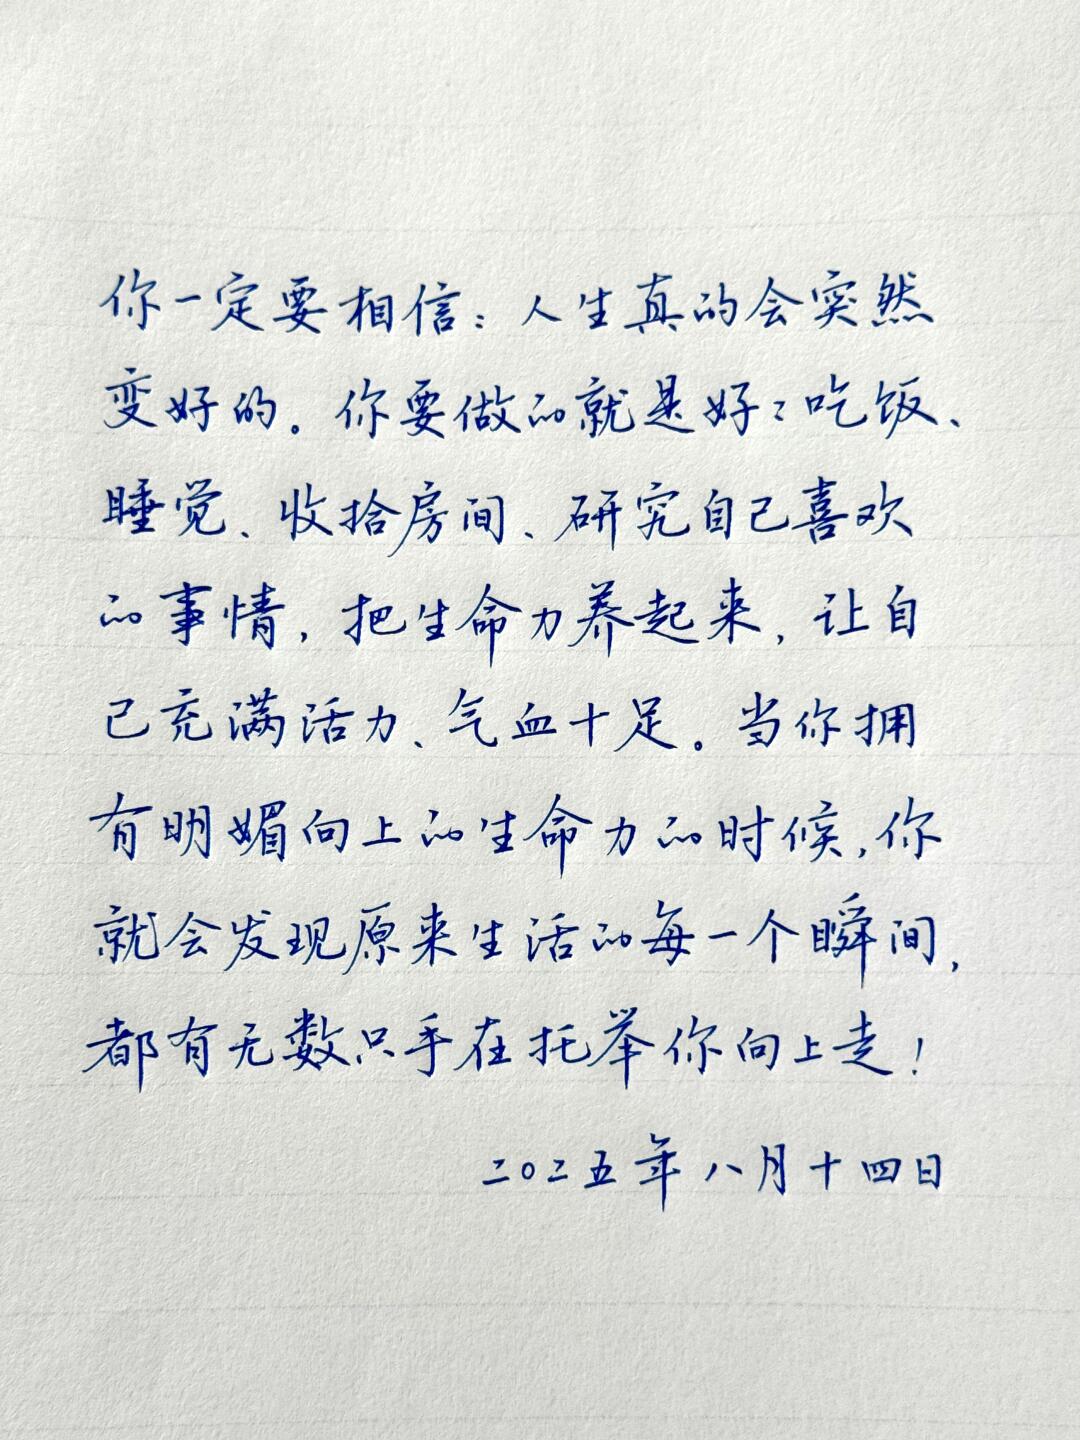 你一定要相信：人生真的会突然
变好的。你要做的就是好々吃饭、
睡觉、收拾房间、研究自己喜欢
的事情，把生命力养起来，让自
己充满活力、气血十足。当你拥
有明媚向上的生命力的时候，你
就会发现原来生活的每一个瞬间，
都有无数只手在托举你向上走！
二〇二五年八月十四日